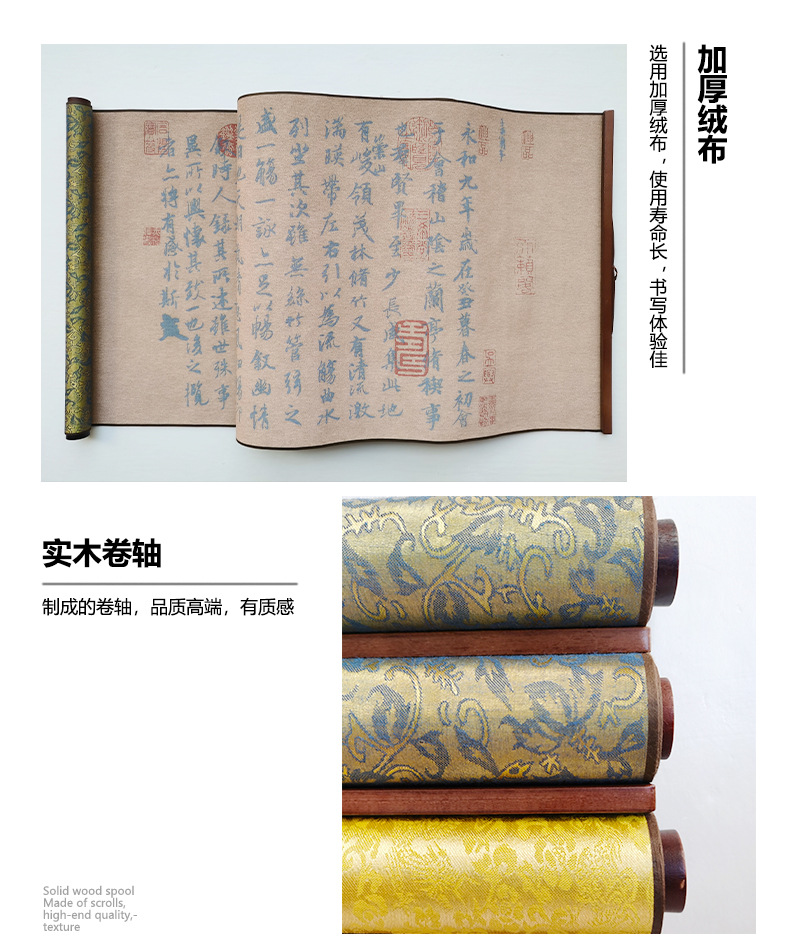 加厚绒布
选用加厚绒布，使用寿命长，书写体验佳
永和九年歲在癸丑暮春之初會
于會稽山陰之蘭亭脩禊事
也羣賢畢至少長咸集此地
崇山
有峻領茂林脩竹又有清流激
湍暎帶左右引以為流觴曲水
列坐其次雖無絲竹管弦之
盛一觴一詠亦足以暢敘幽情
時人錄其所述雖世殊事
異所以興懷其致一也後之攬
者亦將有感於斯文
实木卷轴
制成的卷轴，品质高端，有质感
Solid wood spool
Made of scrolls,
high-end quality,-
texture